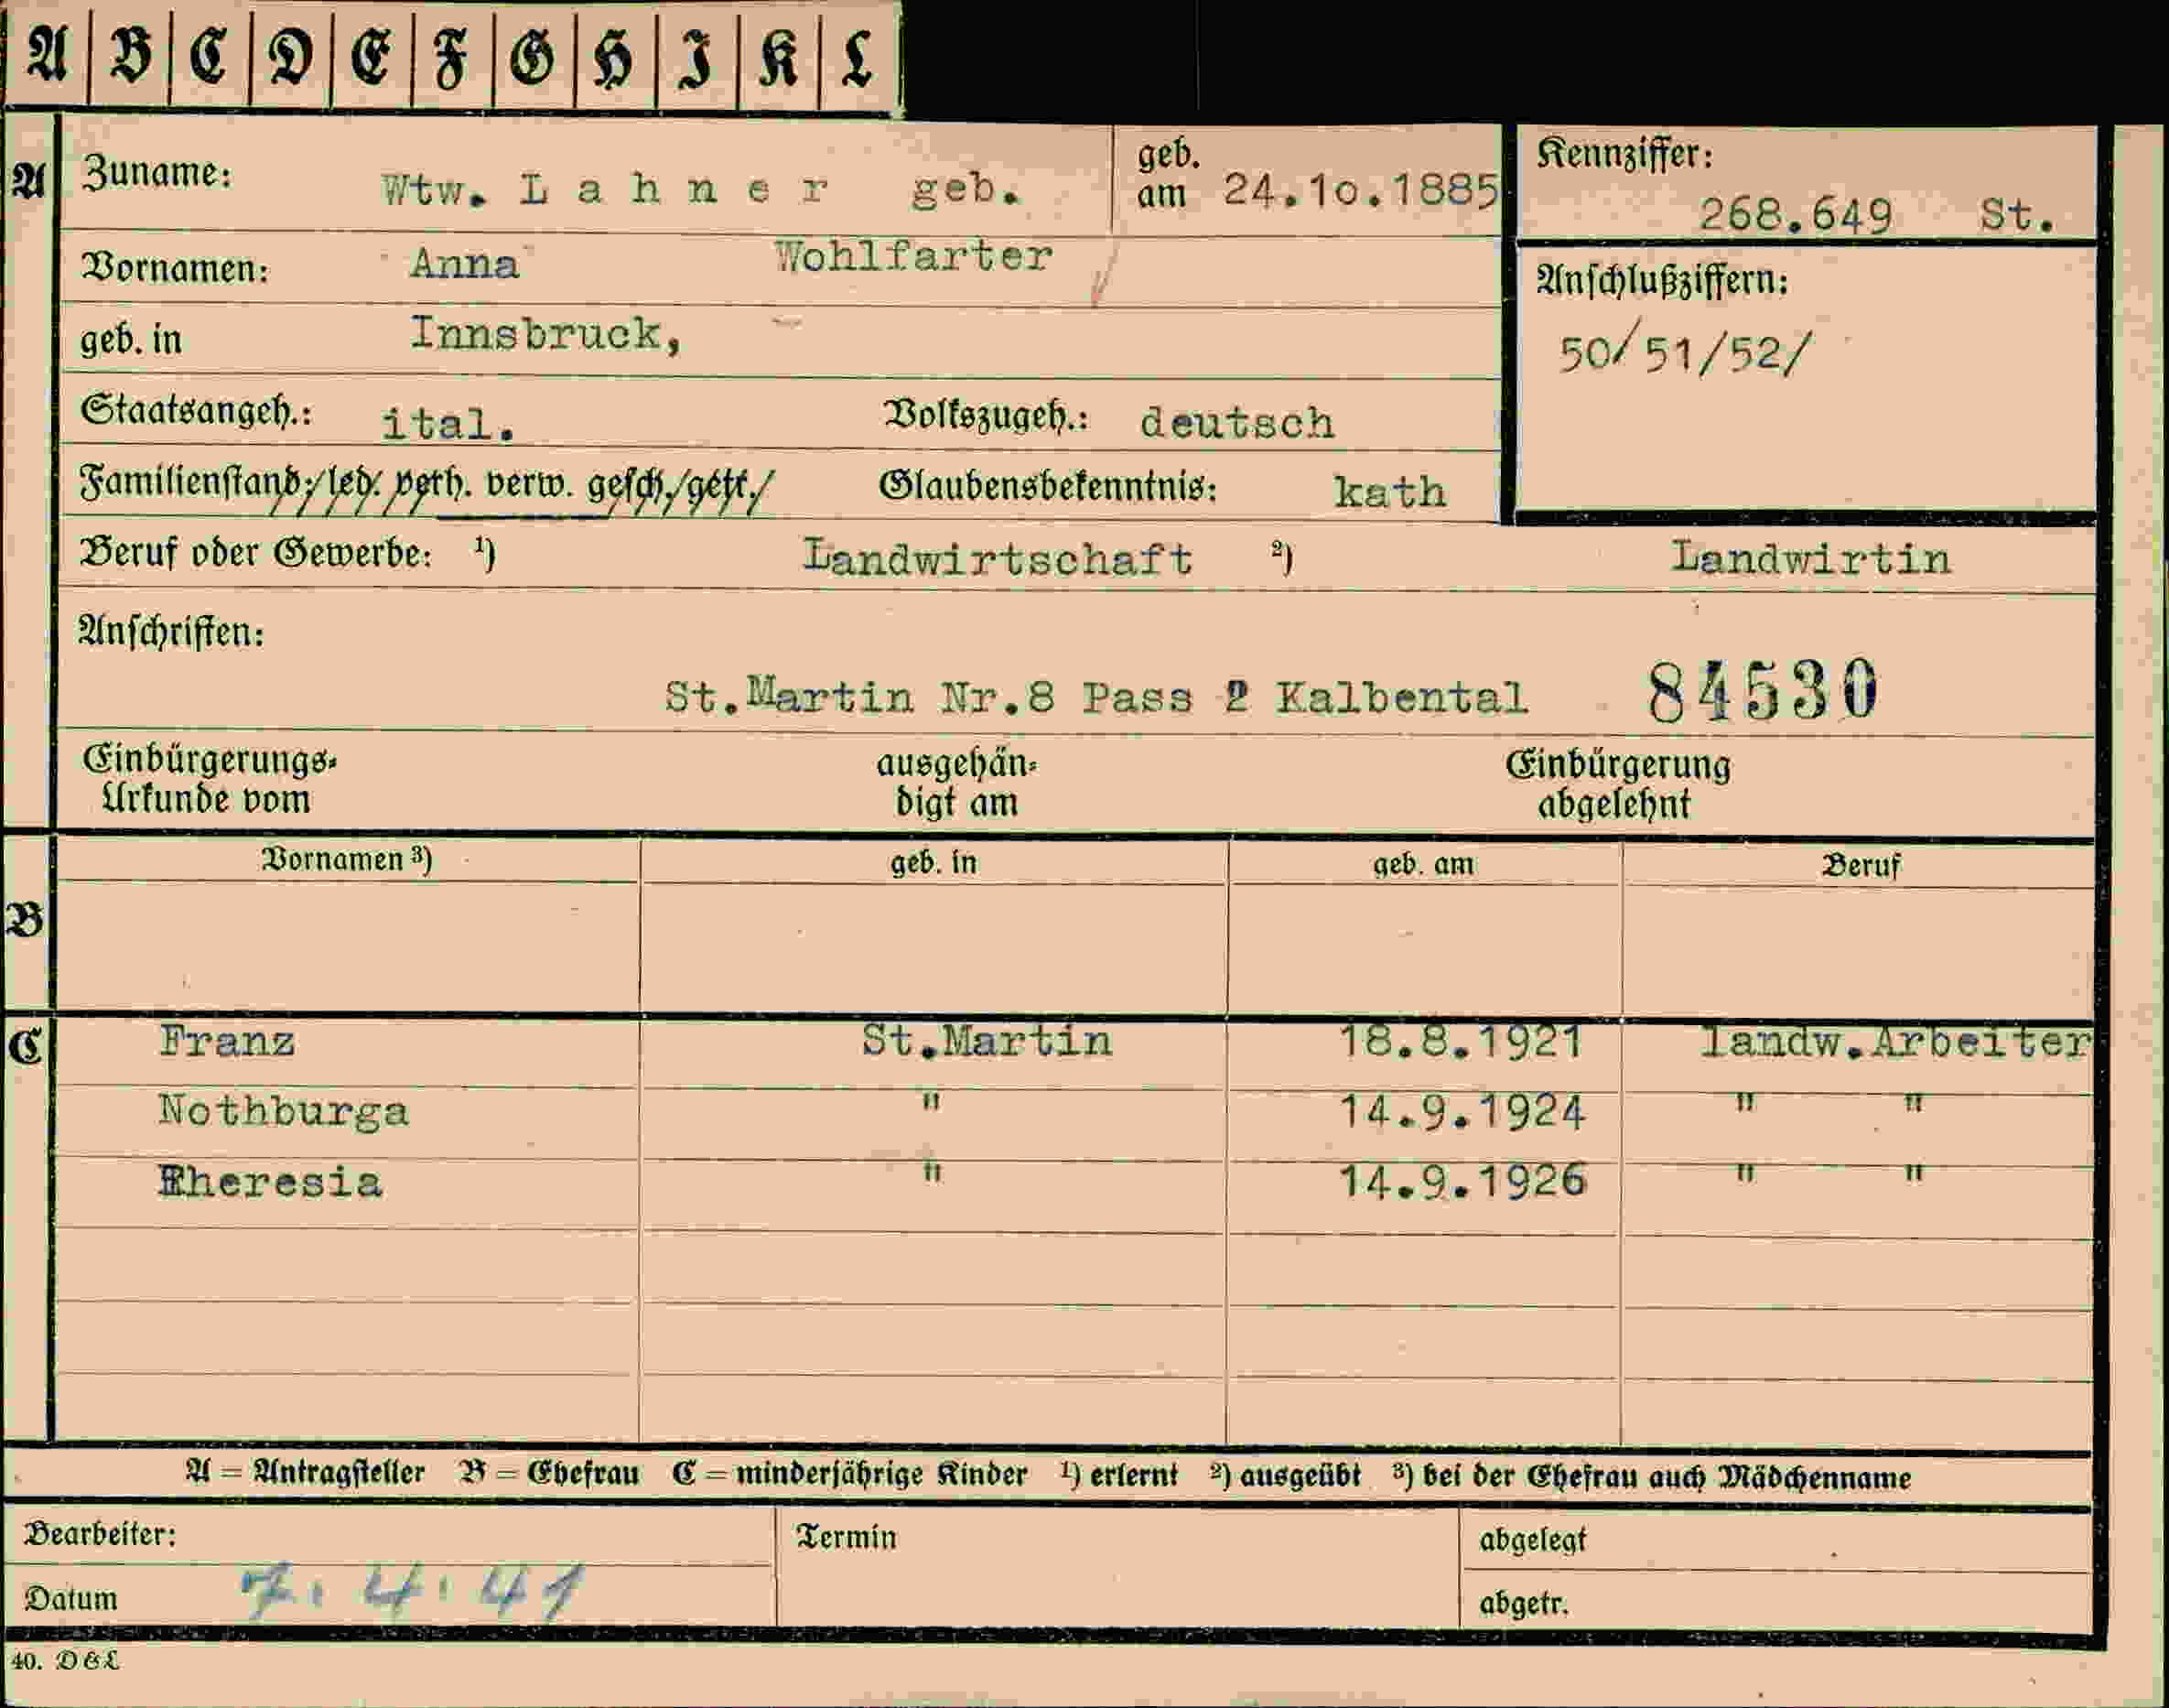 A B C D E F G H I K L
A
Zuname: Wtw. L a h n e r geb.
geb. am 24.1o.1885
Kennziffer: 268.649 St.
Vornamen: Anna Wohlfarter
Anschlußziffern:
50/51/52/
geb. in Innsbruck,
Staatsangeh.: ital. Volkszugeh.: deutsch
Familienstand: led. verh. verw. gesch./getr./ Glaubensbekenntnis: kath
Beruf oder Gewerbe: ¹) Landwirtschaft ²) Landwirtin
Anschriften:
St.Martin Nr.8 Pass 2 Kalbental 84530
Einbürgerungs-Urkunde vom
ausgehändigt am
Einbürgerung abgelehnt
B
Vornamen ³) geb. in geb. am Beruf
C
Franz St.Martin 18.8.1921 landw.Arbeiter
Nothburga " 14.9.1924 " "
Theresia " 14.9.1926 " "
A = Antragsteller B = Ehefrau C = minderjährige Kinder ¹) erlernt ²) ausgeübt ³) bei der Ehefrau auch Mädchenname
Bearbeiter:
Termin
abgelegt
Datum 7.4.41
abgetr.
40. D & L